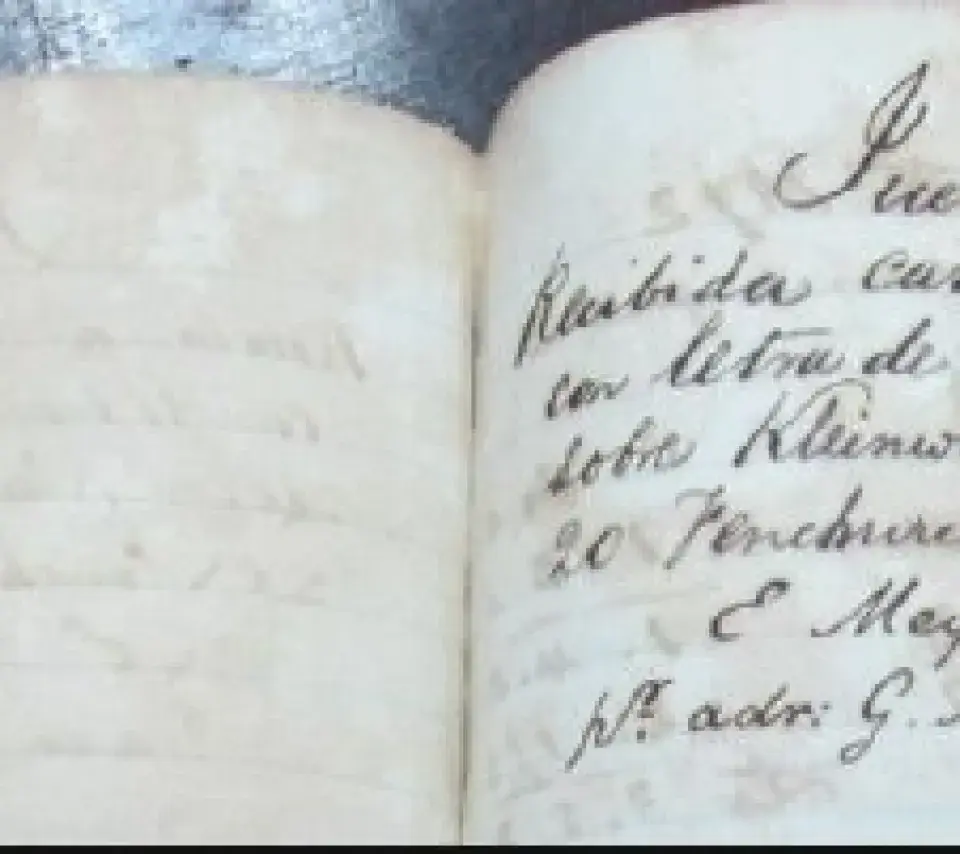 Jue
Recibida car
con letra de
sobre Kleinw
20 Fenchurc
E Mey
pr. adr: G.